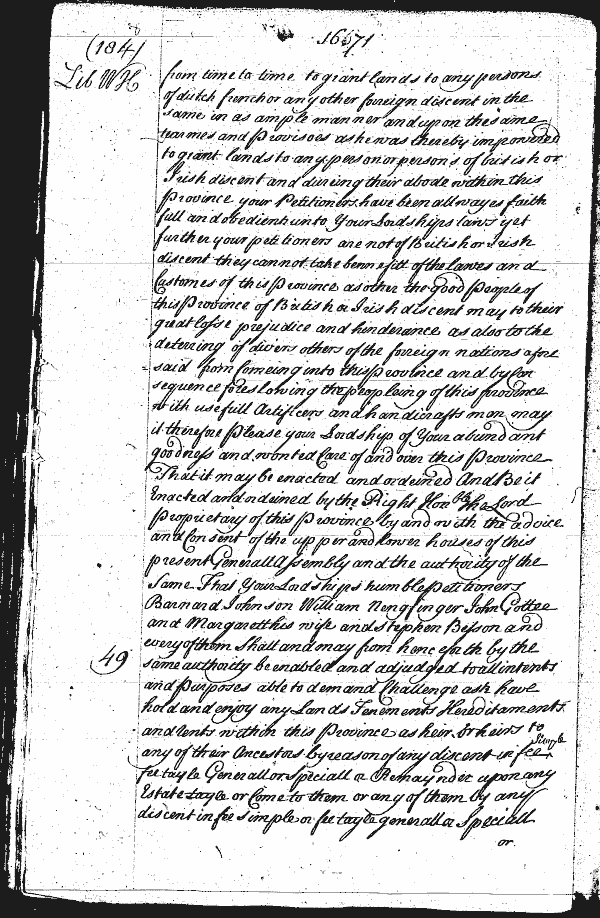 (184)
1671
Lib WH
from time to time to grant lands to any persons
of dutch french or any other foreign discent in the
same in as ample manner and upon the same
tearmes and Provisoes as he was thereby impowred
to grant lands to any person or persons of british or
Irish discent and dureing their abode within this
Province your Petitioners have been allwayes faith
full and obedient unto Your Lordships laws yet
further your petitioners are not of British or Irish
discent they cannot take bennefitt of the lawes and
Customes of this Province as other the good People of
this Province of British or Irish discent may to their
great losse prejudice and hinderance as also to the
deterring of divers others of the foreign nations afore
said from comeing into this Province and by Con
sequence foreslowing the peopleing of this province
with usefull Artificers and handicrafts men may
it therefore Please your Lordship of Your abundant
goodness and wonted Care of and over this Province
That it may be enacted and ordeined And Be it
Enacted and ordeined by the Right Honble the Lord
Proprietary of this Province by and with the advice
and Consent of the upper and lower houses of this
present Generall Assembly and the authority of the
Same That Your Lordships humble Petitioners
Barnard Johnson William Nengfinger John Cottee
and Margarett his wife and Stephen Besson and
every of them Shall and may from henceforth by the
49
same authority be enabled and adjudged to all intents
and Purposes able to demand Challenge ask have
hold and enjoy any Lands Tenements Hereditaments
and rents within this Province as heir or heirs to
any of their Ancestors by reason of any discent in fee Simple
fee tayle Generall or Speciall or Remaynder upon any
Estate tayle or Come to them or any of them by any
discent in fee simple or fee tayle generall or Speciall
or